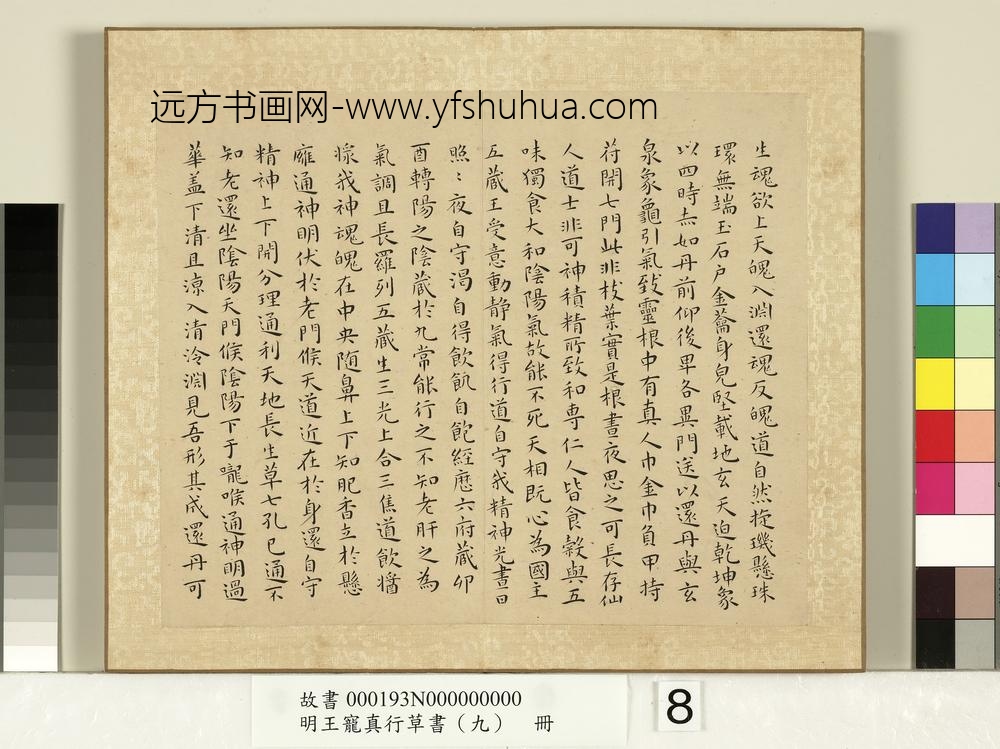 远方书画网-www.yfshuhua.com
生魂欲上天魄入淵還魂反魄道自然㨔璣懸珠
環無端玉石戶金籥身皃堅載地玄天迫乾坤象
以四時赤如丹前仰後卑各異門送以還丹與玄
泉象龜引氣致靈根中有真人巾金巾負甲持
苻開七門此非枝葉實是根晝夜思之可長存仙
人道士非可神積精所致和専仁人皆食穀與五
味獨食大和陰陽氣故能不死天相既心為國主
五藏王受意動靜氣得行道自守我精神光晝日
照〻夜自守渴自得飲飢自飽經歷六府藏卯
酉轉陽之陰藏於九常能行之不知老肝之為
氣調且長羅列五藏生三光上合三焦道飲醬
漿我神魂魄在中央随鼻上下知肥香立於懸
雍通神明伏於老門候天道近在於身還自守
精神上下開分理通利天地長生草七孔已通不
知老還坐陰陽天門候陰陽下于嚨喉通神明過
華盖下清且涼入清泠淵見吾形其成還丹可
故書 000193N000000000
明王寵真行草書（九） 冊
8